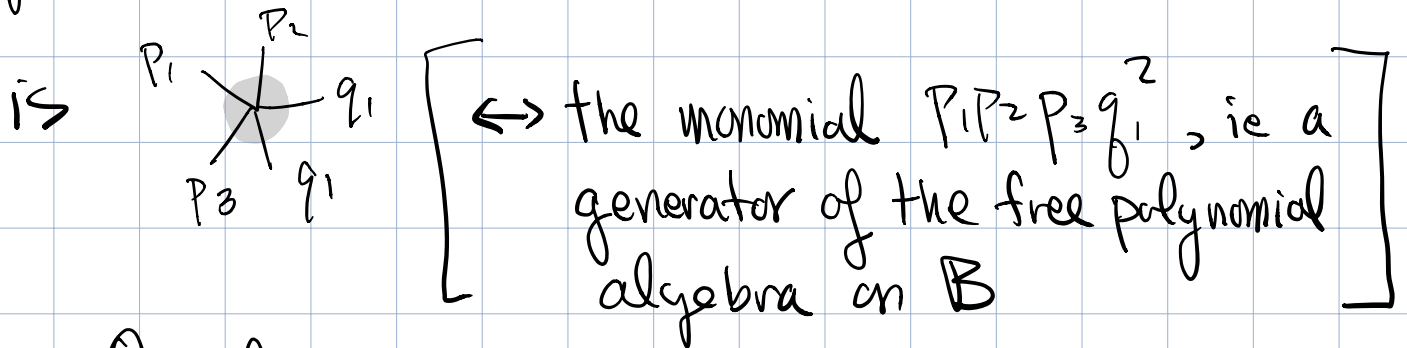 p₂
p₁
is
q₁
p₃ q₁
[ ↔ the monomial p₁p₂p₃q₁², ie a
generator of the free polynomial
algebra on 𝔹 ]